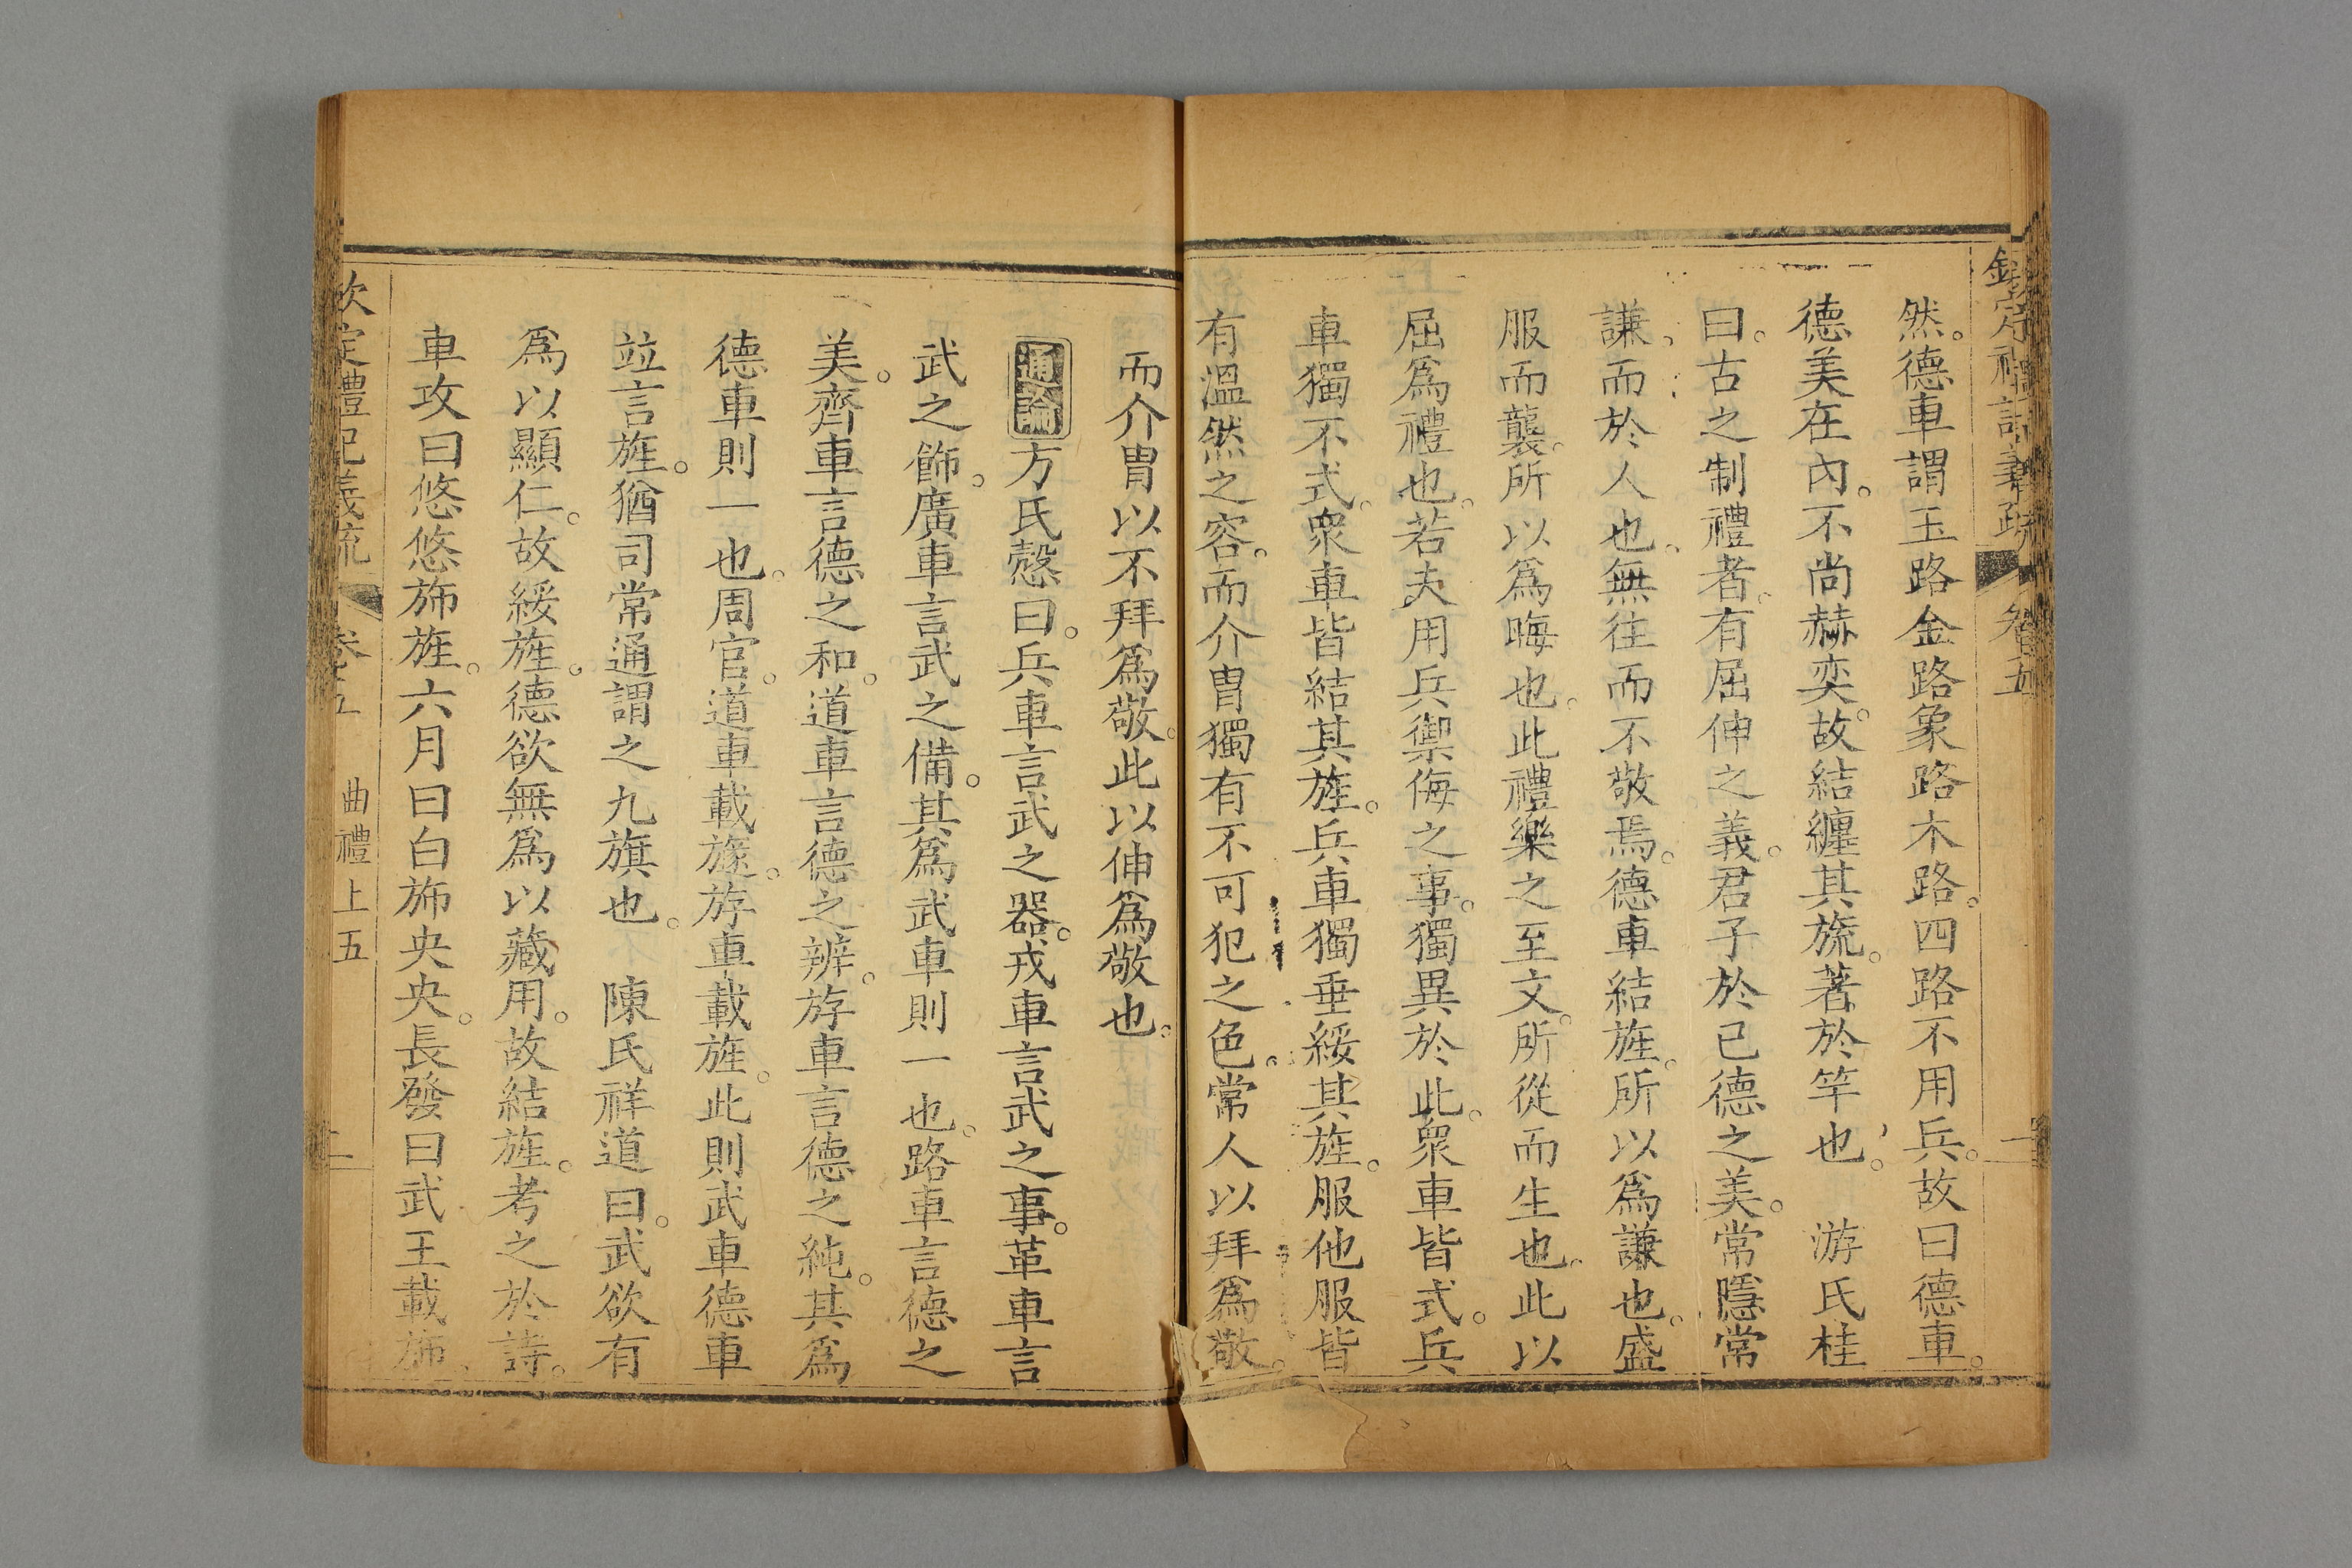 欽定禮記義疏 卷五 一
然。德車謂玉路金路象路木路。四路不用兵。故曰德車。
德美在內。不尚赫奕。故結纏其旒。著於竿也。 游氏桂
曰。古之制禮者。有屈伸之義。君子於已德之美。常隱常
謙。而於人也。無往而不敬焉。德車結旌。所以爲謙也。盛
服而襲。所以爲晦也。此禮樂之至文。所從而生也。此以
屈爲禮也。若夫用兵禦侮之事。獨異於此。眾車皆式。兵
車獨不式。眾車皆結其旌。兵車獨垂綏其旌。服他服皆
有溫然之容。而介冑獨有不可犯之色。常人以拜爲敬。
而介冑以不拜爲敬。此以伸爲敬也。
通論方氏慤曰。兵車言武之器。戎車言武之事。革車言
武之飾。廣車言武之備。其爲武車則一也。路車言德之
美。齊車言德之和。道車言德之辨。斿車言德之純。其爲
德車則一也。周官。道車載旞。斿車載旌。此則武車德車
竝言旌。猶司常通謂之九旗也。 陳氏祥道曰。武欲有
爲以顯仁。故綏旌。德欲無爲以藏用。故結旌。考之於詩。
車攻曰悠悠斾旌。六月曰白斾央央。長發曰武王載斾。
欽定禮記義疏 卷五 曲禮上五 二